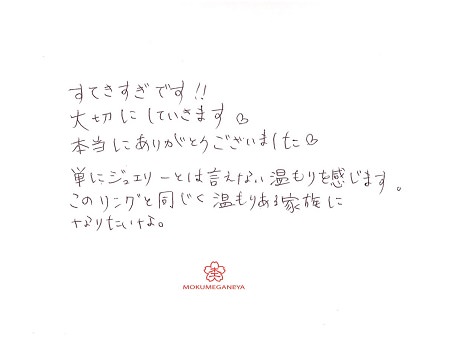 すてきすぎです!!
大切にしていきます♡
本当にありがとうございました♡
単にジュエリーとは言えない温もりを感じます。
このリングと同じく温もりある家族に
なりたいな。
MOKUMEGANEYA